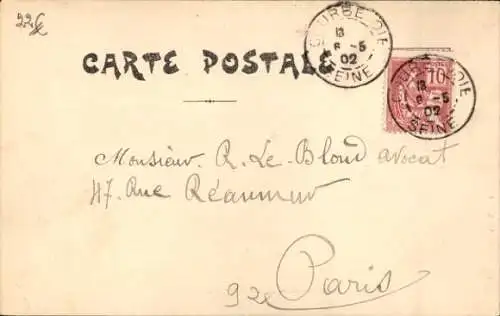 22€
COURBEVOIE
13
8 -5
02
SEINE
CARTE POSTALE
10
COURBEVOIE
13
8 -5
02
SEINE
Monsieur R. Le-Blond avocat
47. Rue Réaumur
Paris